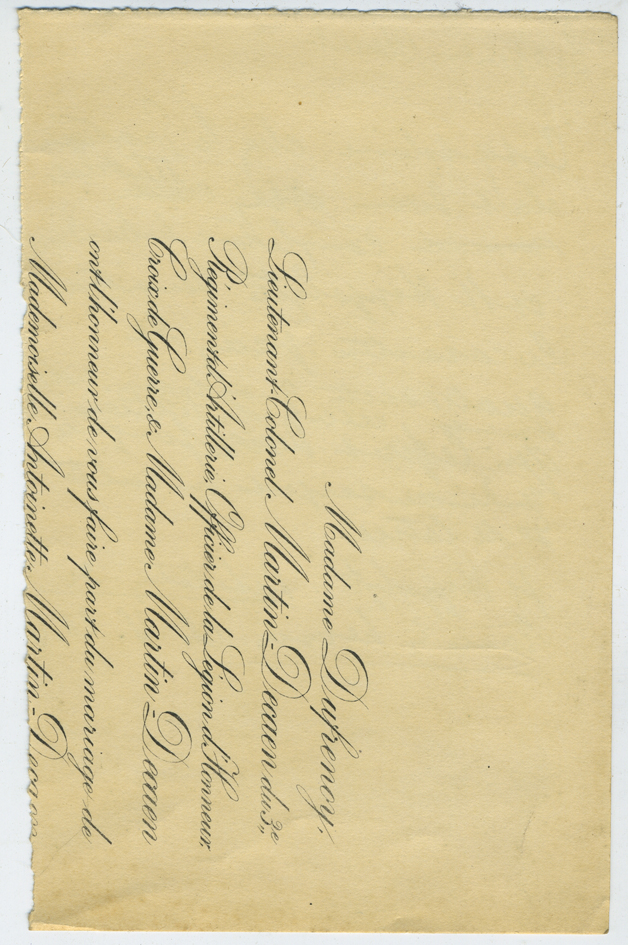 Madame Dufrénoy,
Lieutenant-Colonel Martin-Decaen du 3e
Régiment d'Artillerie, Officier de la Légion d'Honneur,
Croix de Guerre, & Madame Martin-Decaen
ont l'honneur de vous faire part du mariage de
Mademoiselle Antoinette Martin-Decaen